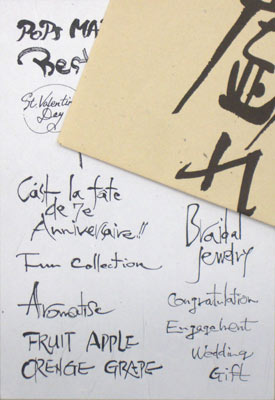 POPS MA
Best
St. Valentin
Day
Cást la fate
de 7e
Anniversaire!!
Fun Collection
Aromatise
FRUIT APPLE
ORENGE GRAPE
Braidal
Jewelry
Congratulation
Engagement
Wedding
Gift